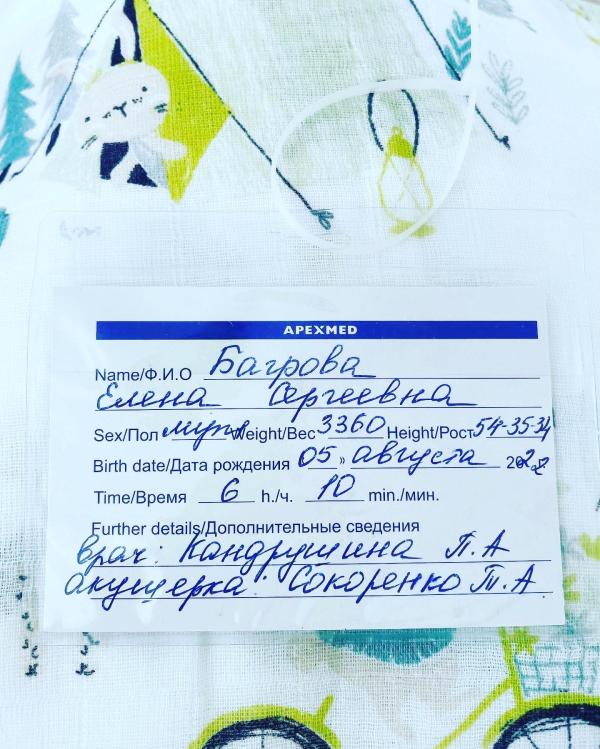 APEXMED
Name/Ф.И.О Багрова
Елена Сергеевна
Sex/Пол муж Weight/Вес 3360 Height/Рост 54-35-34
Birth date/Дата рождения 05 » августа 2022
Time/Время 6 h./ч. 10 min./мин.
Further details/Дополнительные сведения
врач: Кандрушина П.А
акушерка: Сокоренко Т.А.